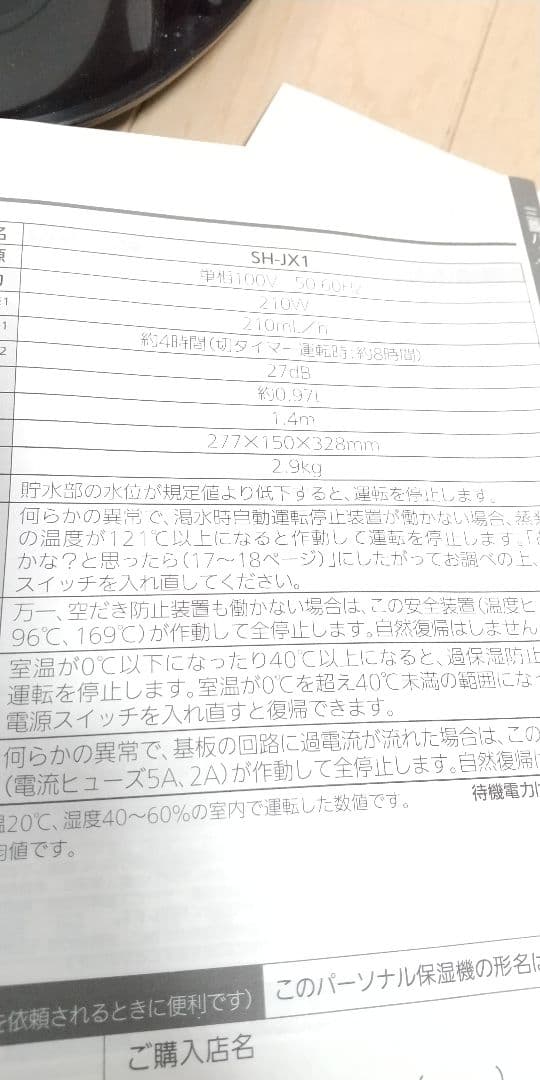 三菱パ
名
SH-JX1
源
単相100V 50-60Hz
力
210W
※1
210mL/h
1
約4時間(切タイマー運転時:約8時間)
2
27dB
約0.97L
1.4m
277×150×328mm
2.9kg
貯水部の水位が規定値より低下すると、運転を停止します。
何らかの異常で、渇水時自動運転停止装置が働かない場合、蒸発
の温度が121℃以上になると作動して運転を停止します。「
かな?と思ったら(17〜18ページ)」にしたがってお調べの上、
スイッチを入れ直してください。
万一、空だき防止装置も働かない場合は、この安全装置(温度ヒ
96℃、169℃)が作動して全停止します。自然復帰はしません
室温が0℃以下になったり40℃以上になると、過保湿防止
運転を停止します。室温が0℃を超え40℃未満の範囲になっ
電源スイッチを入れ直すと復帰できます。
何らかの異常で、基板の回路に過電流が流れた場合は、この
(電流ヒューズ5A、2A)が作動して全停止します。自然復帰は
待機電力は
温20℃、湿度40〜60%の室内で運転した数値です。
均値です。
を依頼されるときに便利です)
このパーソナル保湿機の形名は
ご購入店名